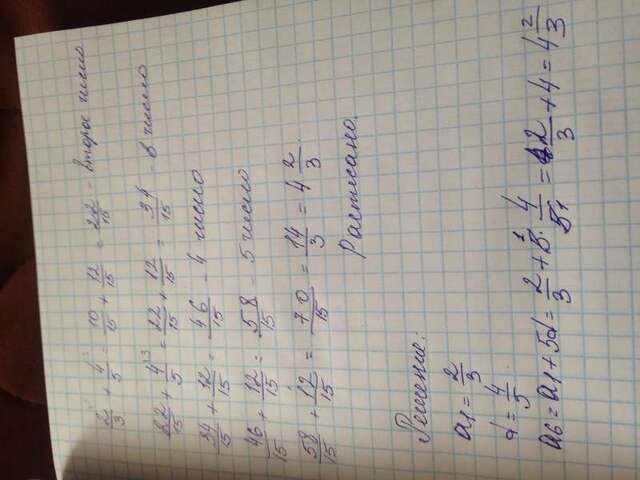 2/3 + 4/5 = 10/15 + 12/15 = 22/15 - второе число
22/15 + 4/5 = 22/15 + 12/15 = 34/15 - в число
34/15 + 12/15 = 46/15 - 4 число
46/15 + 12/15 = 58/15 - 5 число
58/15 + 12/15 = 70/15 = 14/3 = 4 2/3.
Расписано.
Решение:
a1 = 2/3
d = 4/5.
a6 = a1 + 5d = 2/3 + 5 · 4/5 = 2/3 + 4 = 4 2/3